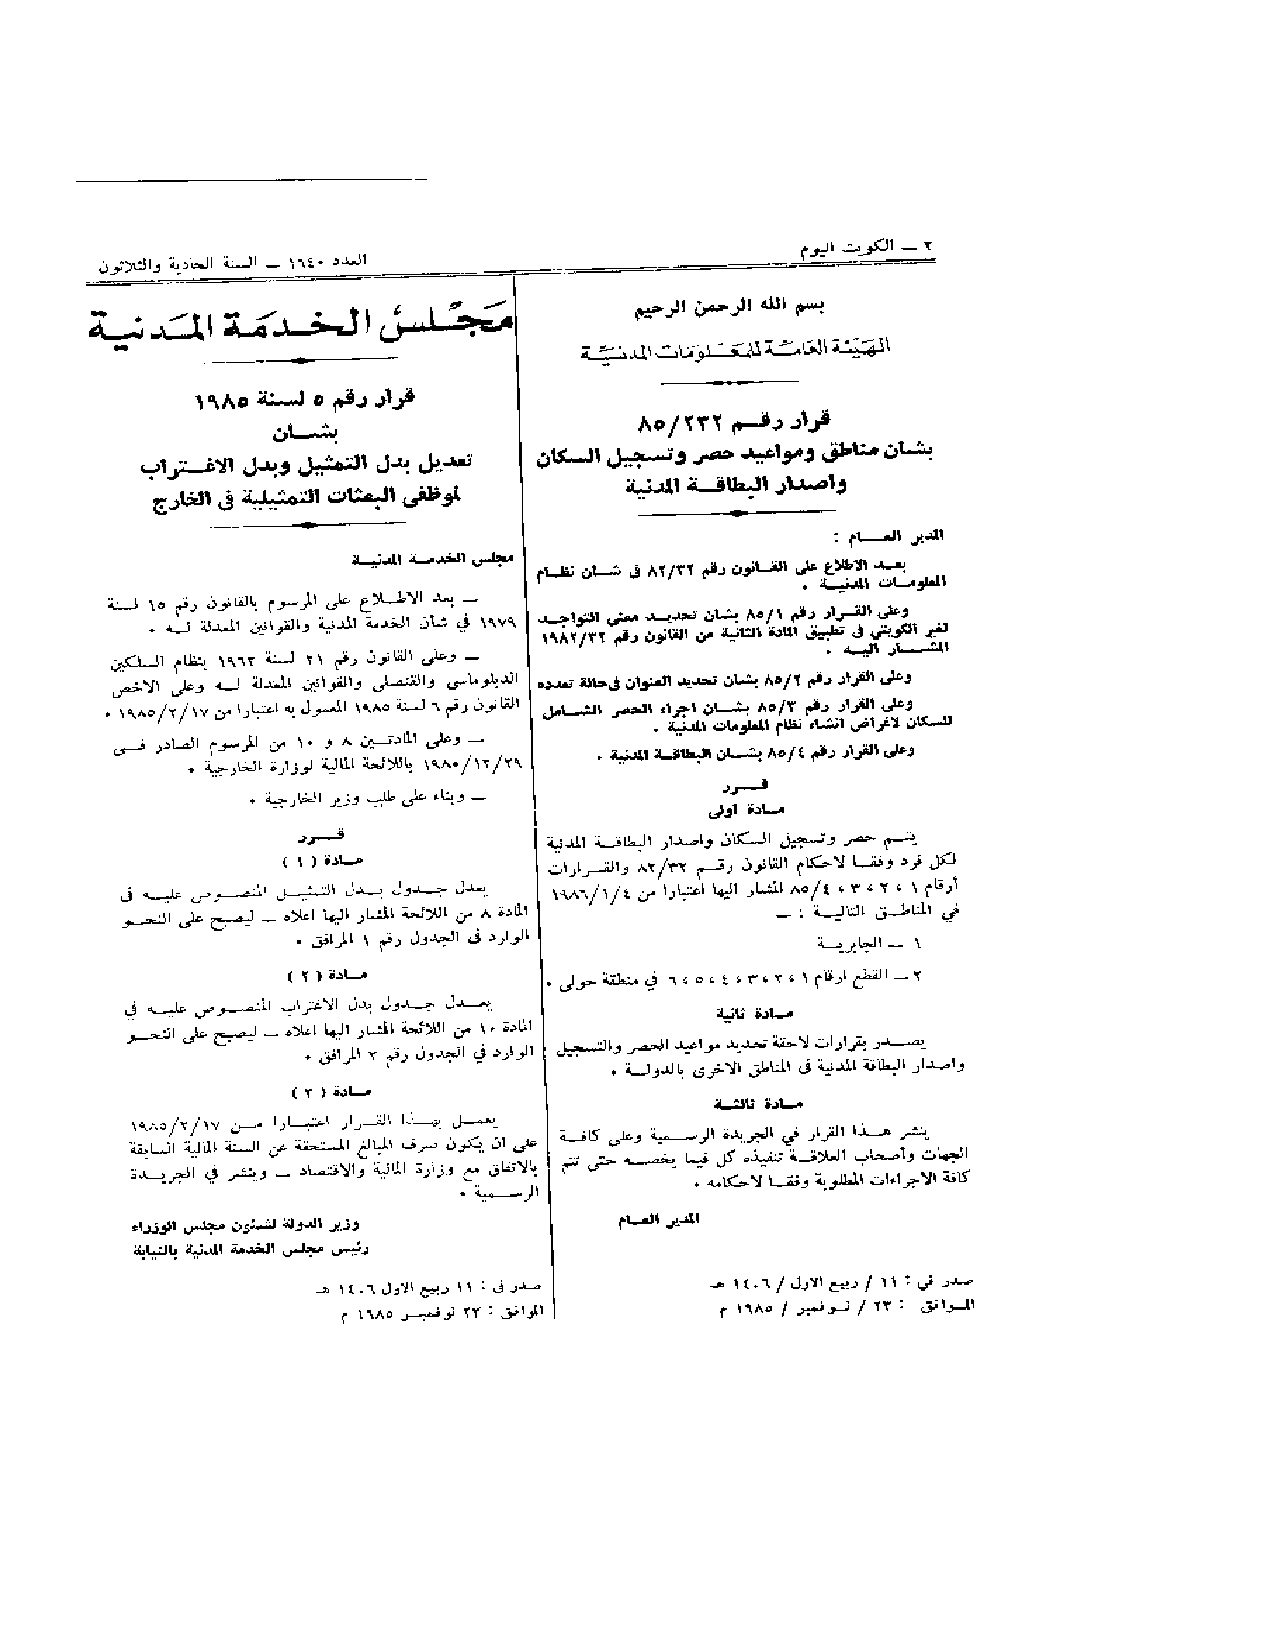 ٢ — الكويت اليوم
العدد ١٦٤٠ — السنة الحادية والثلاثون
بسم الله الرحمن الرحيم
الهيئة العامة للمعلومات المدنية
قرار رقم ٨٥/٢٣٢
بشان مناطق ومواعيد حصر وتسجيل السكان
واصدار البطاقة المدنية
المدير العام :
بعد الاطلاع على القانون رقم ٨٢/٣٢ فى شان نظام
المعلومات المدنية .
وعلى القرار رقم ٨٥/١ بشان تحديد معنى التواجد
لغير الكويتى فى تطبيق المادة الثانية من القانون رقم ١٩٨٢/٣٢
المشار اليه .
وعلى القرار رقم ٨٥/٢ بشان تحديد العنوان فى حالة تعدده
وعلى القرار رقم ٨٥/٣ بشان اجراء الحصر الشامل
للسكان لاغراض انشاء نظام المعلومات المدنية .
وعلى القرار رقم ٨٥/٤ بشان البطاقة المدنية .
قرر
مادة اولى
يتم حصر وتسجيل السكان واصدار البطاقة المدنية
لكل فرد وفقا لاحكام القانون رقم ٨٢/٣٢ والقرارات
أرقام ١ ، ٢ ، ٣ ، ٨٥/٤ المشار اليها اعتبارا من ١٩٨٦/١/٤
في المناطق التالية : —
١ — الجابرية
٢ — القطع ارقام ١ ، ٢ ، ٣ ، ٤ ، ٥ ، ٦ في منطقة حولى .
مادة ثانية
يصدر بقرارات لاحقة تحديد مواعيد الحصر والتسجيل
واصدار البطاقة المدنية فى المناطق الاخرى بالدولة .
مادة ثالثة
ينشر هذا القرار في الجريدة الرسمية وعلى كافة
الجهات وأصحاب العلاقة تنفيذه كل فيما يخصه حتى تتم
كافة الاجراءات المطلوبة وفقا لاحكامه .
المدير العام
صدر في : ١١ / ربيع الاول / ١٤٠٦ هـ
الموافق : ٢٣ / نوفمبر / ١٩٨٥ م
مجلس الخدمة المدنية
قرار رقم ٥ لسنة ١٩٨٥
بشان
تعديل بدل التمثيل وبدل الاغتراب
لموظفى البعثات التمثيلية فى الخارج
مجلس الخدمة المدنية
— بعد الاطلاع على المرسوم بالقانون رقم ١٥ لسنة
١٩٧٩ في شان الخدمة المدنية والقوانين المعدلة له .
— وعلى القانون رقم ٢١ لسنة ١٩٦٢ بنظام السلكين
الدبلوماسى والقنصلى والقوانين المعدلة له وعلى الاخص
القانون رقم ٦ لسنة ١٩٨٥ المعمول به اعتبارا من ١٩٨٥/٢/١٧ .
— وعلى المادتين ٨ و ١٠ من المرسوم الصادر فى
١٩٨٠/١٢/٢٩ باللائحة المالية لوزارة الخارجية .
— وبناء على طلب وزير الخارجية .
قرر
مادة ( ١ )
يعدل جدول بدل التمثيل المنصوص عليه فى
المادة ٨ من اللائحة المشار اليها اعلاه — ليصبح على النحو
الوارد فى الجدول رقم ١ المرافق .
مادة ( ٢ )
يعدل جدول بدل الاغتراب المنصوص عليه في
المادة ١٠ من اللائحة المشار اليها اعلاه — ليصبح على النحو
الوارد في الجدول رقم ٢ المرافق .
مادة ( ٣ )
يعمل بهذا القرار اعتبارا من ١٩٨٥/٢/١٧
على ان يكون صرف المبالغ المستحقة عن السنة المالية السابقة
بالاتفاق مع وزارة المالية والاقتصاد — وينشر في الجريدة
الرسمية .
وزير الدولة لشئون مجلس الوزراء
رئيس مجلس الخدمة المدنية بالنيابة
صدر فى : ١١ ربيع الاول ١٤٠٦ هـ
الموافق : ٢٣ نوفمبر ١٩٨٥ م